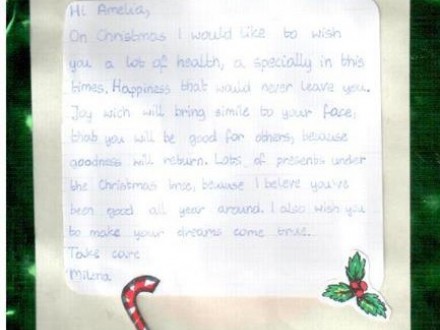 Hi Amelia,
On Christmas I would like to wish
you a lot of health, a specially in this
times. Happiness that would never leave you.
Joy wich will bring simile to your face,
that you will be good for others, because
goodness will return. Lots of presents under
the Christmas tree, because I believe you've
been good all year around. I also wish you
to make your dreams come true.
Take care
Milena